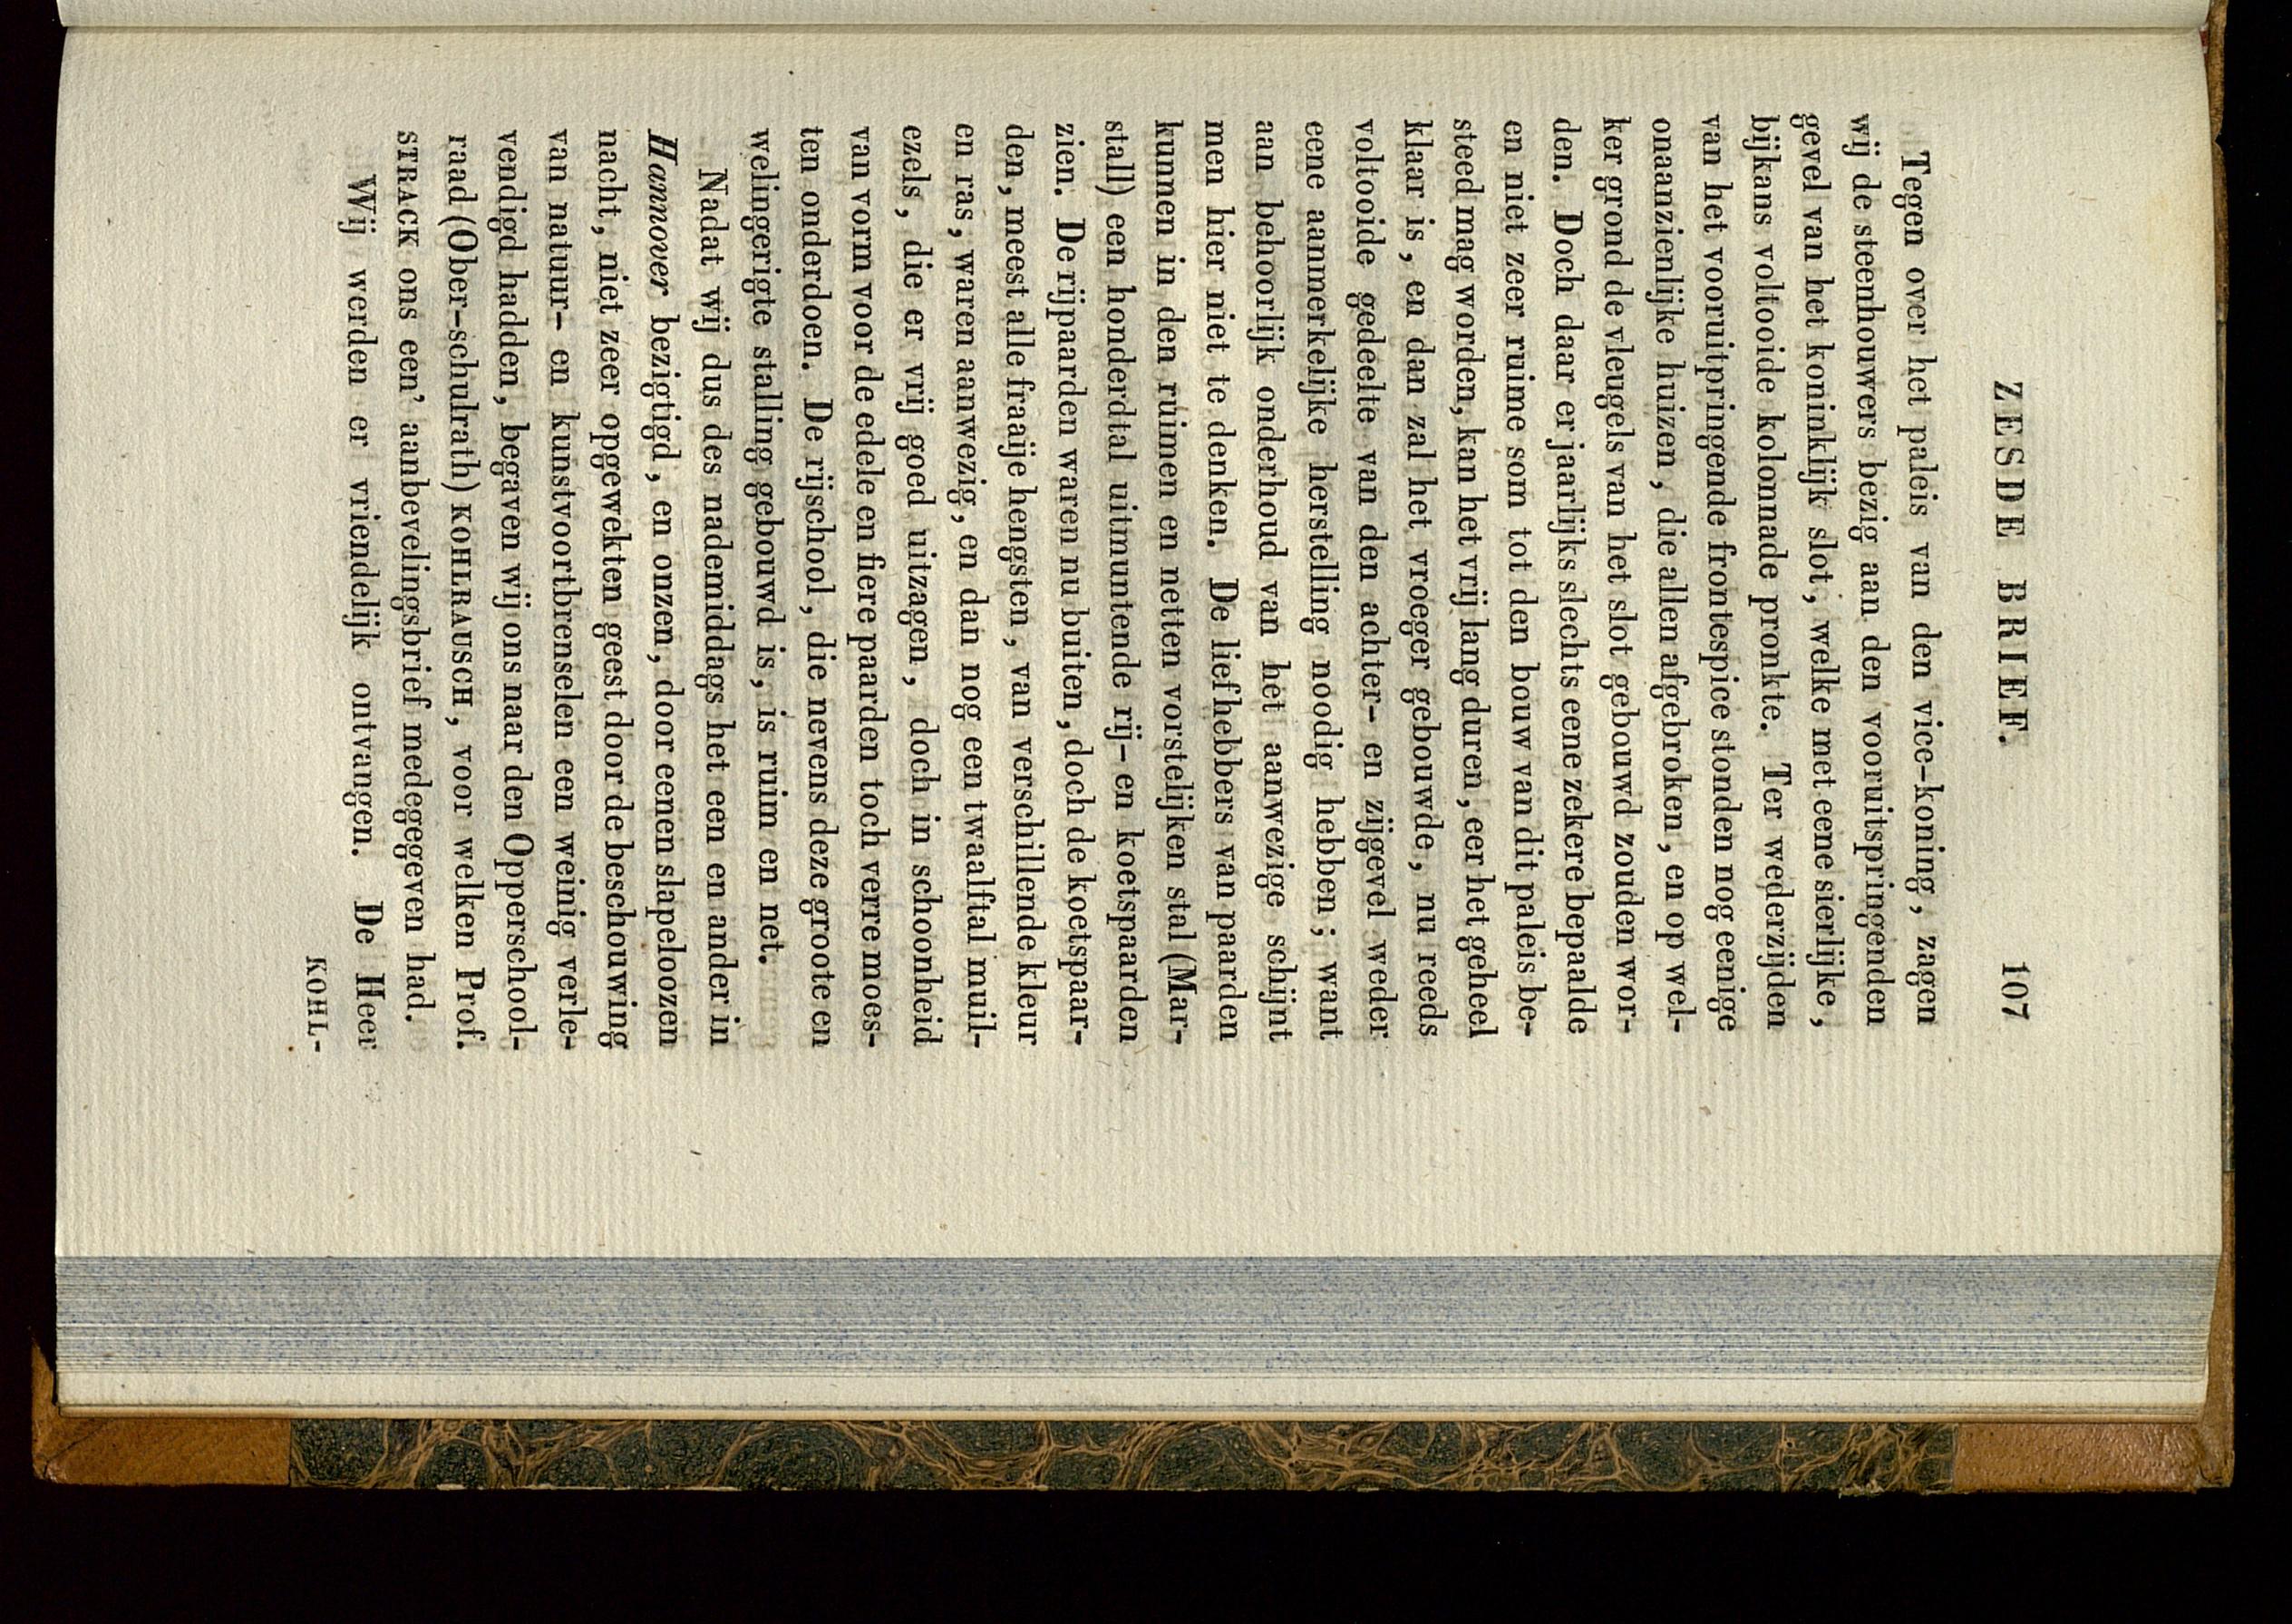 ZESDE BRIEF. 107
Tegen over het paleis van den vice-koning, zagen
wij de steenhouwers bezig aan den vooruitspringenden
gevel van het koninklijk slot, welke met eene sierlijke,
bijkans voltooide kolonnade pronkte. Ter wederzijden
van het vooruitpringende frontespice stonden nog eenige
onaanzienlijke huizen, die allen afgebroken, en op wel-
ker grond de vleugels van het slot gebouwd zouden wor-
den. Doch daar er jaarlijks slechts eene zekere bepaalde
en niet zeer ruime som tot den bouw van dit paleis be-
steed mag worden, kan het vrij lang duren, eer het geheel
klaar is, en dan zal het vroeger gebouwde, nu reeds
voltooide gedeelte van den achter- en zijgevel weder
eene aanmerkelijke herstelling noodig hebben; want
aan behoorlijk onderhoud van het aanwezige schijnt
men hier niet te denken. De liefhebbers van paarden
kunnen in den ruimen en netten vorstelijken stal (Mar-
stall) een honderdtal uitmuntende rij- en koetspaarden
zien. De rijpaarden waren nu buiten, doch de koetspaar-
den, meest alle fraaije hengsten, van verschillende kleur
en ras, waren aanwezig, en dan nog een twaalftal muil-
ezels, die er vrij goed uitzagen, doch in schoonheid
van vorm voor de edele en fiere paarden toch verre moes-
ten onderdoen. De rijschool, die nevens deze groote en
welingerigte stalling gebouwd is, is ruim en net.
Nadat wij dus des nademiddags het een en ander in
Hannover bezigtigd, en onzen, door eenen slapeloozen
nacht, niet zeer opgewekten geest door de beschouwing
van natuur- en kunstvoortbrenselen een weinig verle-
vendigd hadden, begaven wij ons naar den Opperschool-
raad (Ober-schulrath) KOHLRAUSCH, voor welken Prof.
STRACK ons een' aanbevelingsbrief medegegeven had.
Wij werden er vriendelijk ontvangen. De Heer
KOHL-